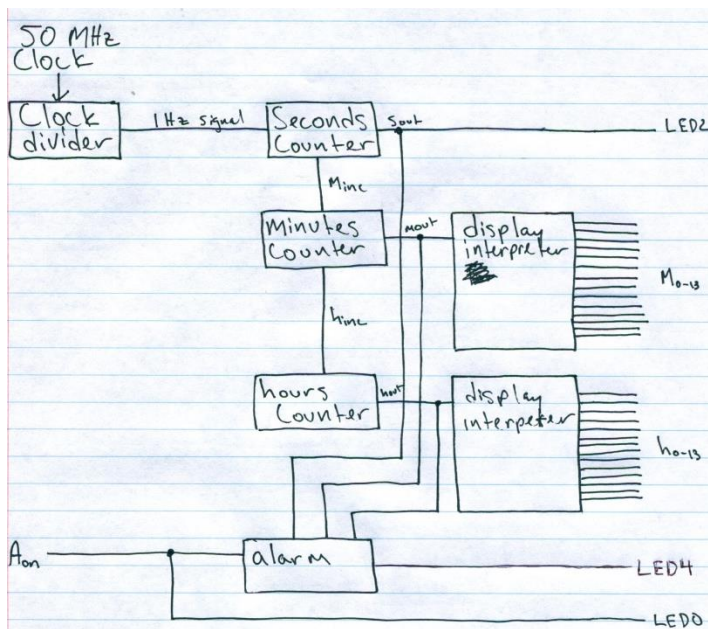 50 MHz
Clock
Clock
divider
1Hz signal
Seconds
Counter
Sout
LED2
Minc
Minutes
Counter
mout
display
interpreter
M0-13
hinc
hours
Counter
hout
display
interpeter
h0-13
Aon
alarm
LED4
LED0